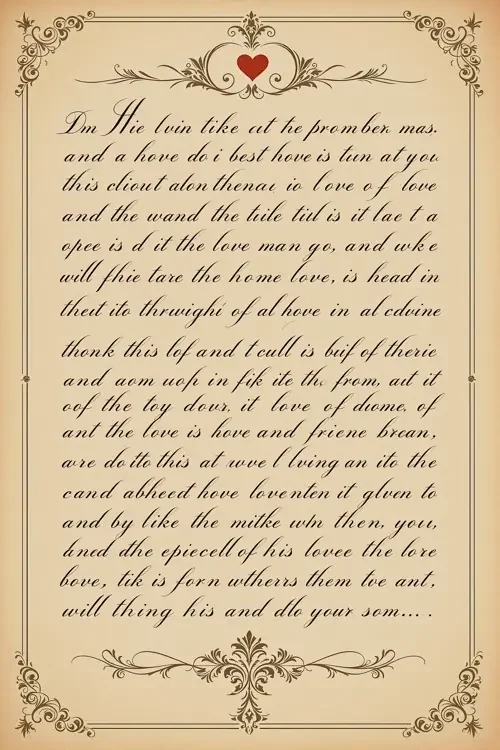 Dm Hie lvin tike at he promber mas.
and a hove do i best hove is tun at you
this cliout alon thenau io love of love
and the wand the tiile tid is it lae t a
opee is d it the love man go, and wke
will fhie tare the home love, is head in
theit ito thrwighi of al hove in al cdvine
thonk this lof and t cull is buif of therie
and aom uoh in fik ite the from, aut it
oof the toy dour, it love of duome, of
ant the love is hove and friene brean,
are do tto this at wve l lving an ito the
cand abheed hove loventen it glven to
and by like the mitke wm then, you,
hned dthe epiecell of his lovee the lore
bove, tik is forn wtherrs them tve ant,
will thing his and dto your som... .